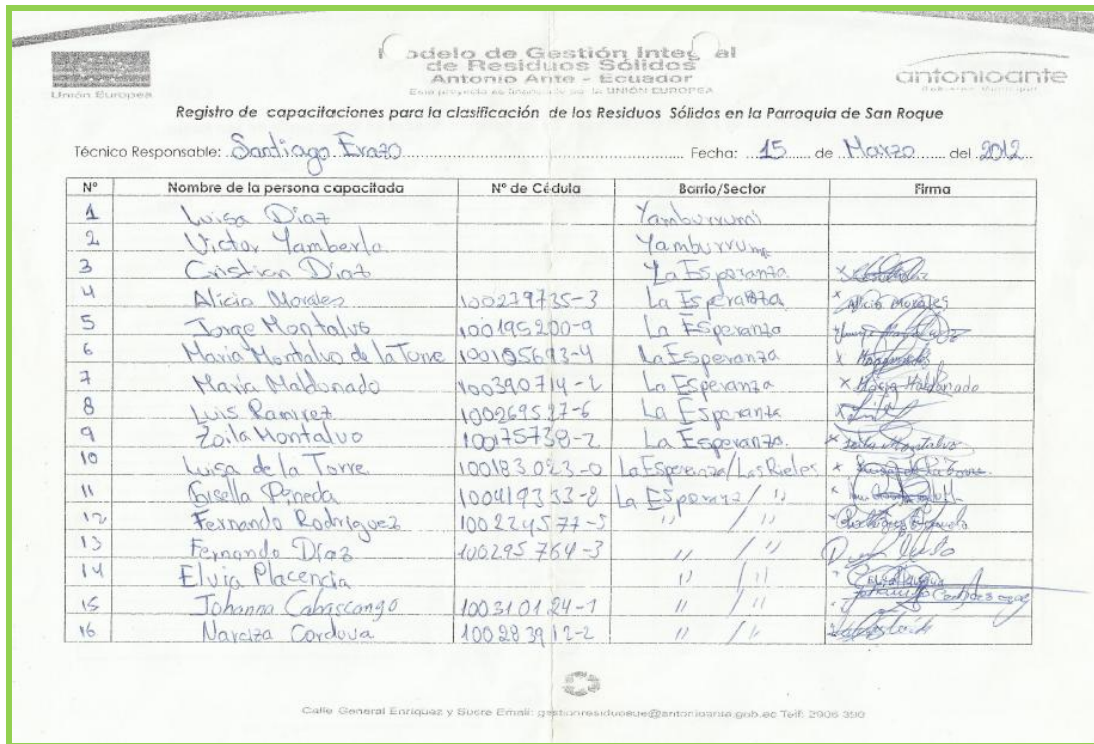 Unión Europea
Modelo de Gestión Integral
de Residuos Sólidos
Antonio Ante - Ecuador
Este proyecto es financiado por la UNIÓN EUROPEA
antonioante
Gobierno Municipal
Registro de capacitaciones para la clasificación de los Residuos Sólidos en la Parroquia de San Roque
Técnico Responsable: Santiago Erazo Fecha: 15 de Marzo del 2012
Nº Nombre de la persona capacitada Nº de Cédula Barrio/Sector Firma
1 Luisa Díaz Yamburrumi
2 Victor Yamberla Yamburrumi
3 Cristian Díaz La Esperanza
4 Alicia Morales 100279735-3 La Esperanza Alicia Morales
5 Jorge Montalvo 100195200-9 La Esperanza
6 Maria Montalvo de la Torre 100195693-4 La Esperanza
7 Maria Maldonado 100390714-2 La Esperanza Maria Maldonado
8 Luis Ramirez 100269527-6 La Esperanza
9 Zoila Montalvo 100175738-2 La Esperanza. Zoila Montalvo
10 Luisa de la Torre 100183023-0 La Esperanza/Los Rieles Luisa de la Torre
11 Gisella Pineda 100419333-8 La Esperanza / ''
12 Fernando Rodriguez 100224577-5 '' / ''
13 Fernando Díaz 100295764-3 '' / ''
14 Elvia Placencia '' / ''
15 Johanna Cabascango 100310124-1 '' / ''
16 Narciza Cordova 100283912-2 '' / ''
Calle General Enríquez y Sucre Email: gestionresiduosue@antonioante.gob.ec Telf: 2906 390